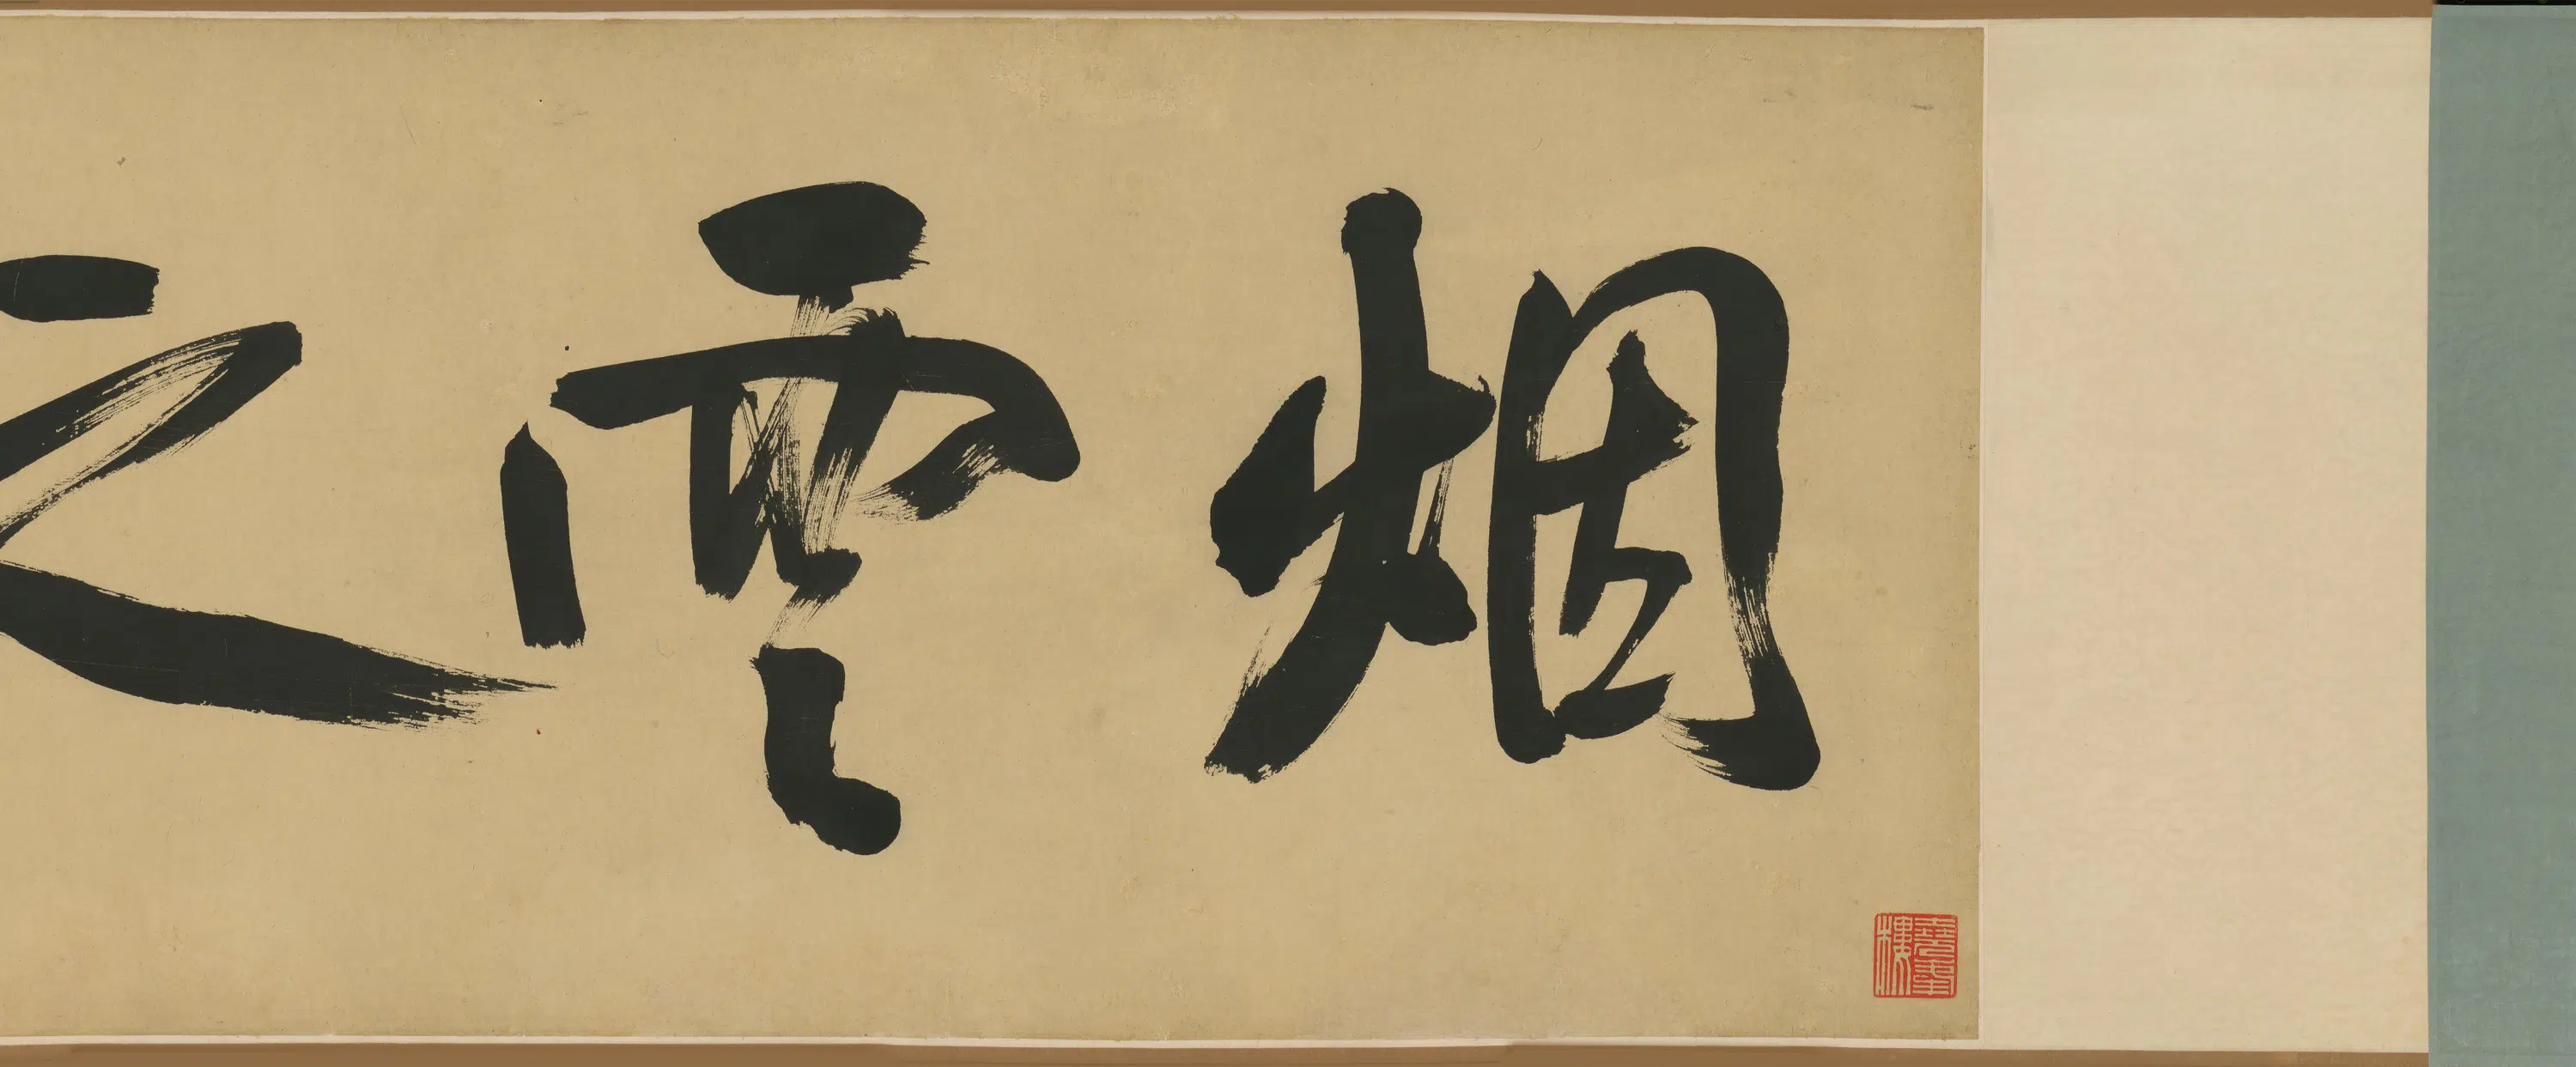 烟雲之